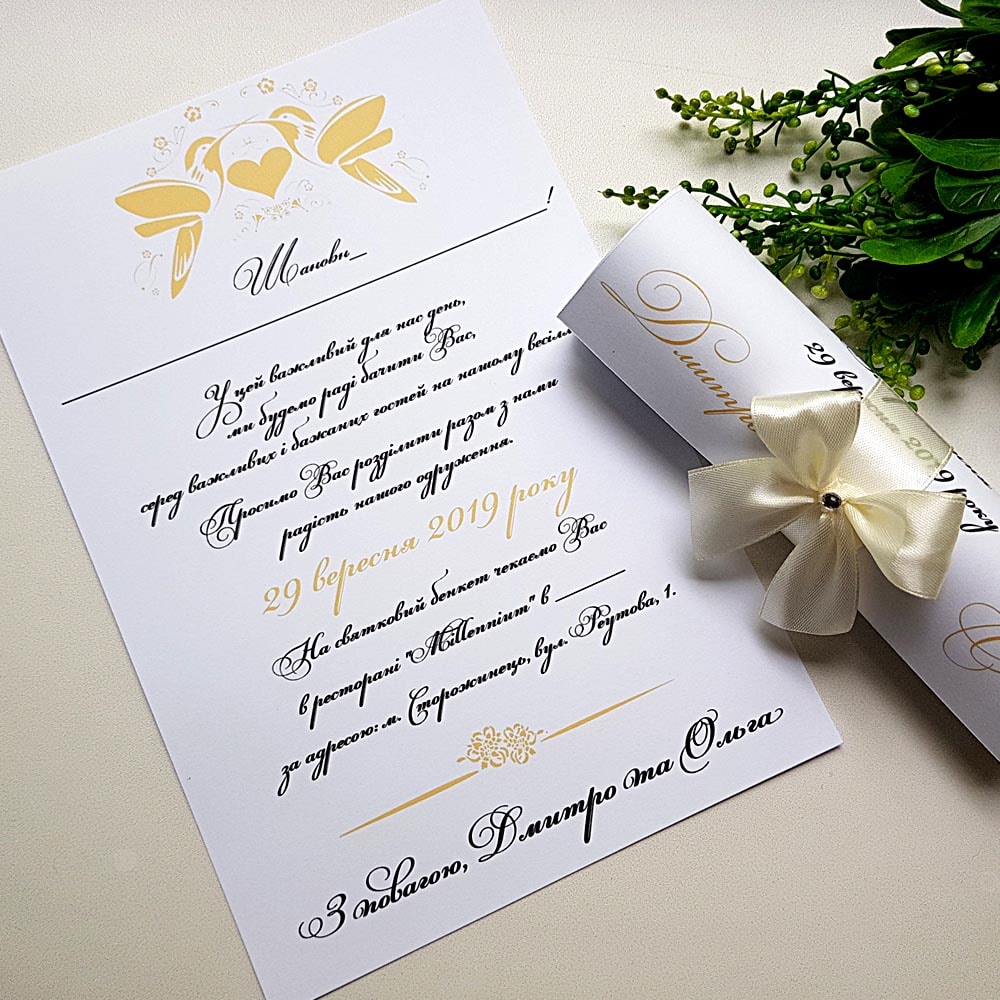 Шановн_
!
У цей важливий для нас день,
ми будемо раді бачити Вас,
серед важливих і бажаних гостей на нашому весіллі
Просимо Вас розділити разом з нами
радість нашого одруження.
29 вересня 2019 року
На святковий бенкет чекаємо Вас
в ресторані "Millennium" в ______
за адресою: м. Сторожинець, вул. Реутова, 1.
З повагою, Дмитро та Ольга
Дмитро
29 вересня 2019 року